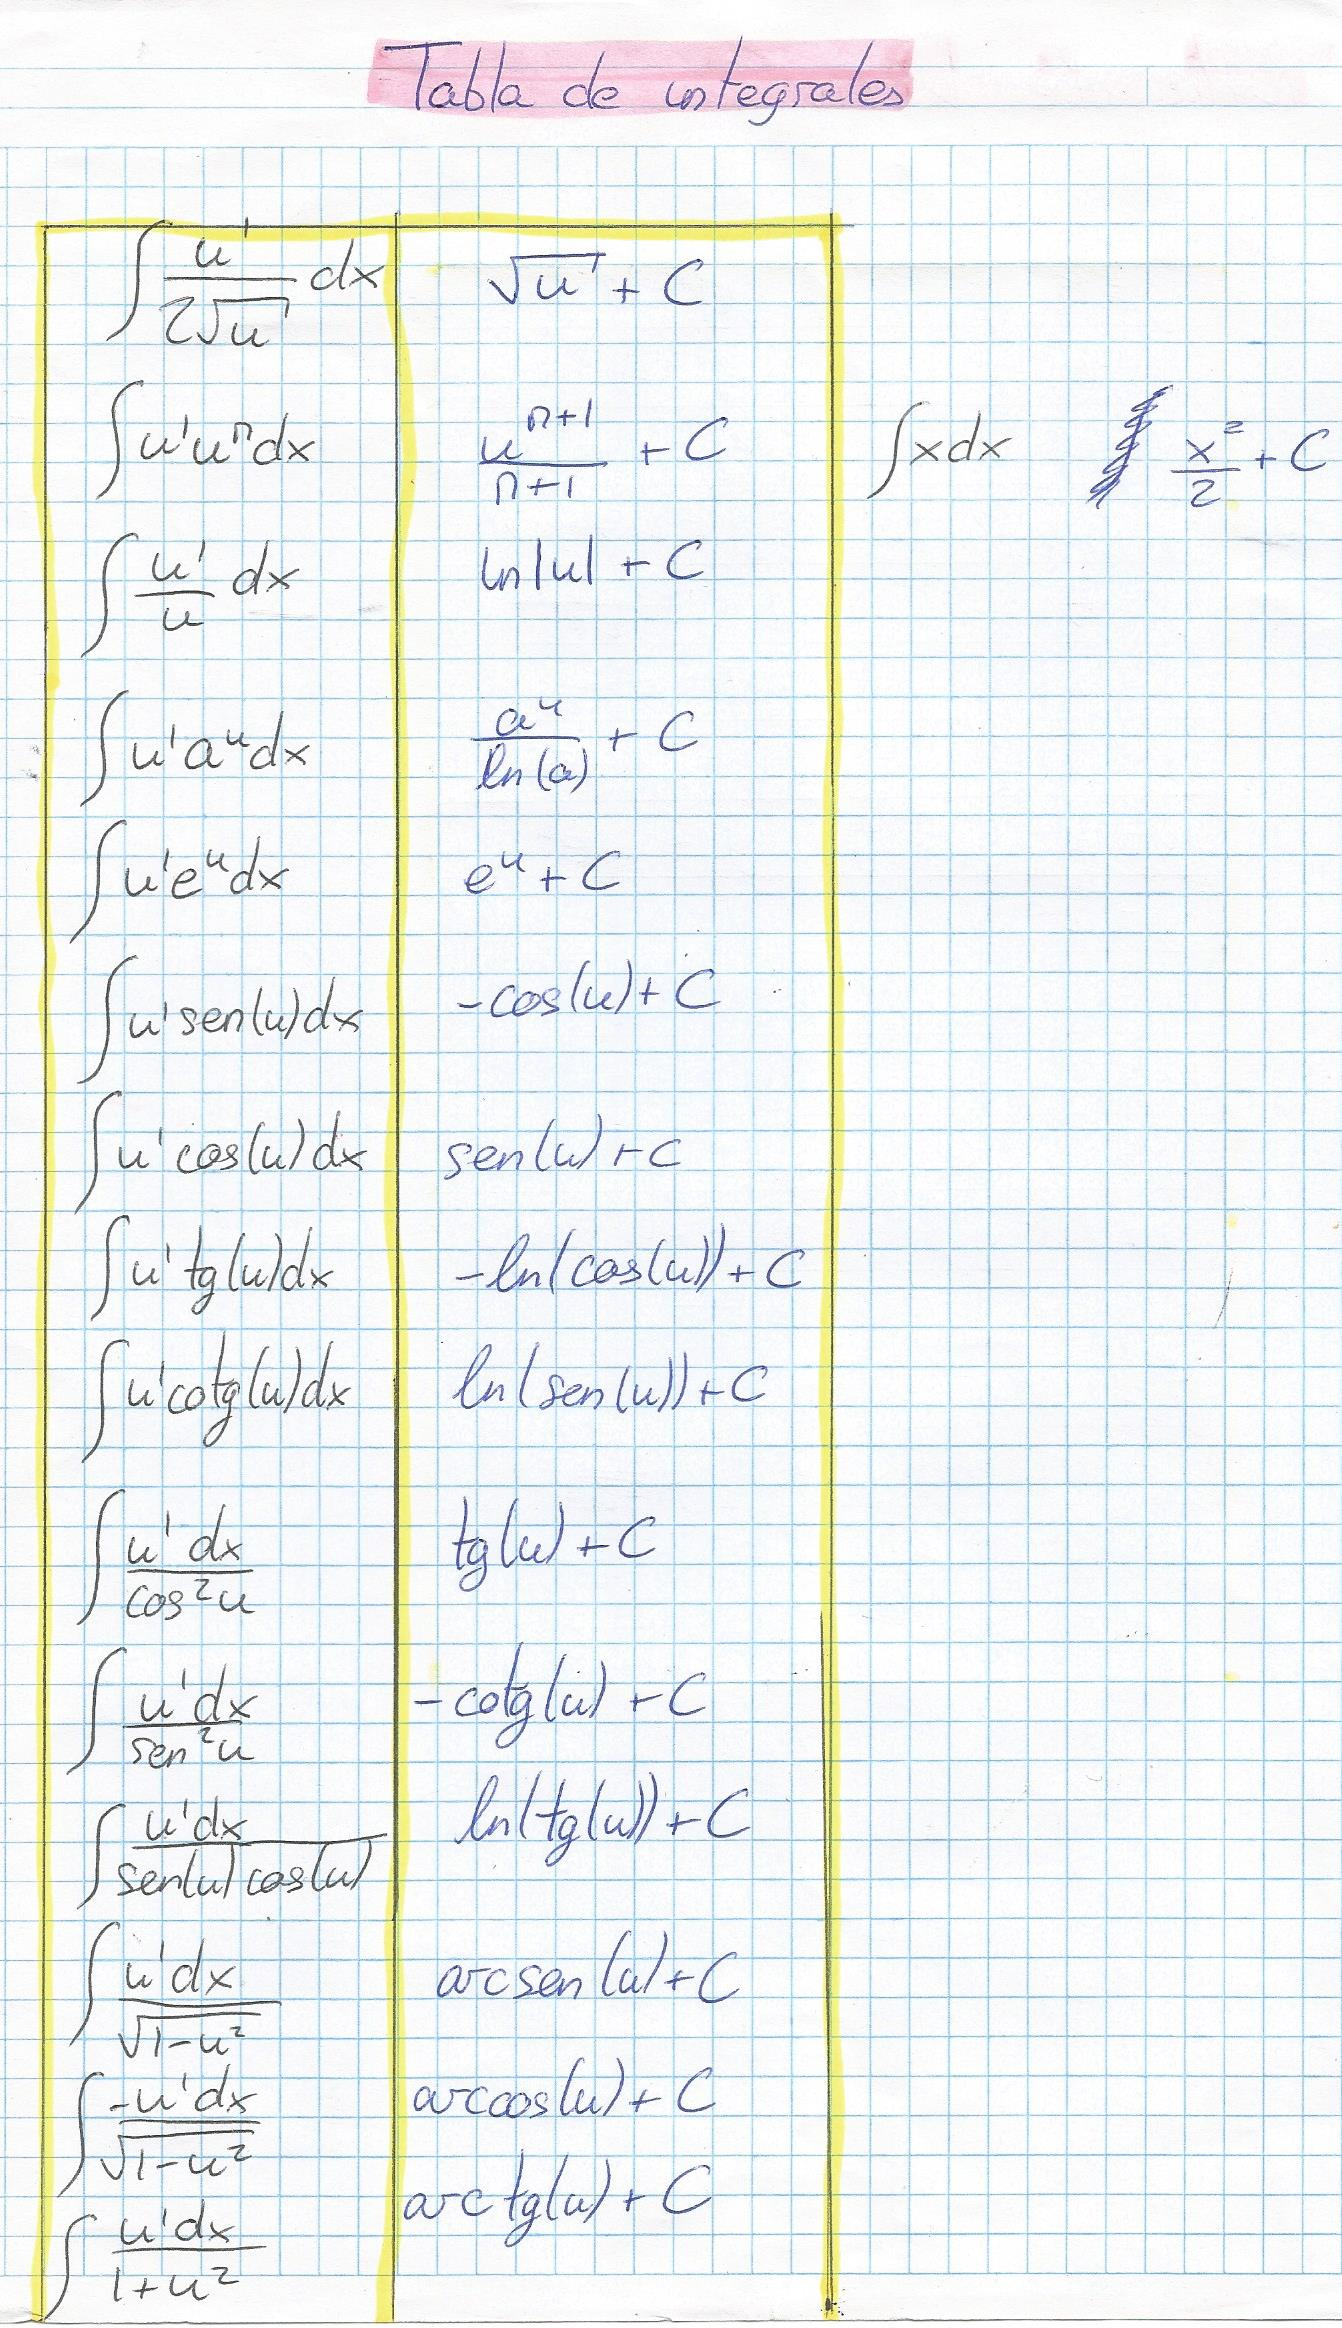 Tabla de integrales
∫ u'/(2√u) dx    √u + C
∫ u'uⁿ dx    uⁿ⁺¹/(n+1) + C    ∫ x dx    x²/2 + C
∫ u'/u dx    ln|u| + C
∫ u'aᵘ dx    aᵘ/ln(a) + C
∫ u'eᵘ dx    eᵘ + C
∫ u' sen(u) dx    -cos(u) + C
∫ u' cos(u) dx    sen(u) + C
∫ u' tg(u) dx    -ln(cos(u)) + C
∫ u' cotg(u) dx    ln(sen(u)) + C
∫ u' dx/cos²u    tg(u) + C
∫ u' dx/sen²u    -cotg(u) + C
∫ u' dx/(sen(u) cos(u))    ln(tg(u)) + C
∫ u' dx/√(1-u²)    arcsen(u) + C
∫ -u' dx/√(1-u²)    arccos(u) + C
∫ u' dx/(1+u²)    arctg(u) + C